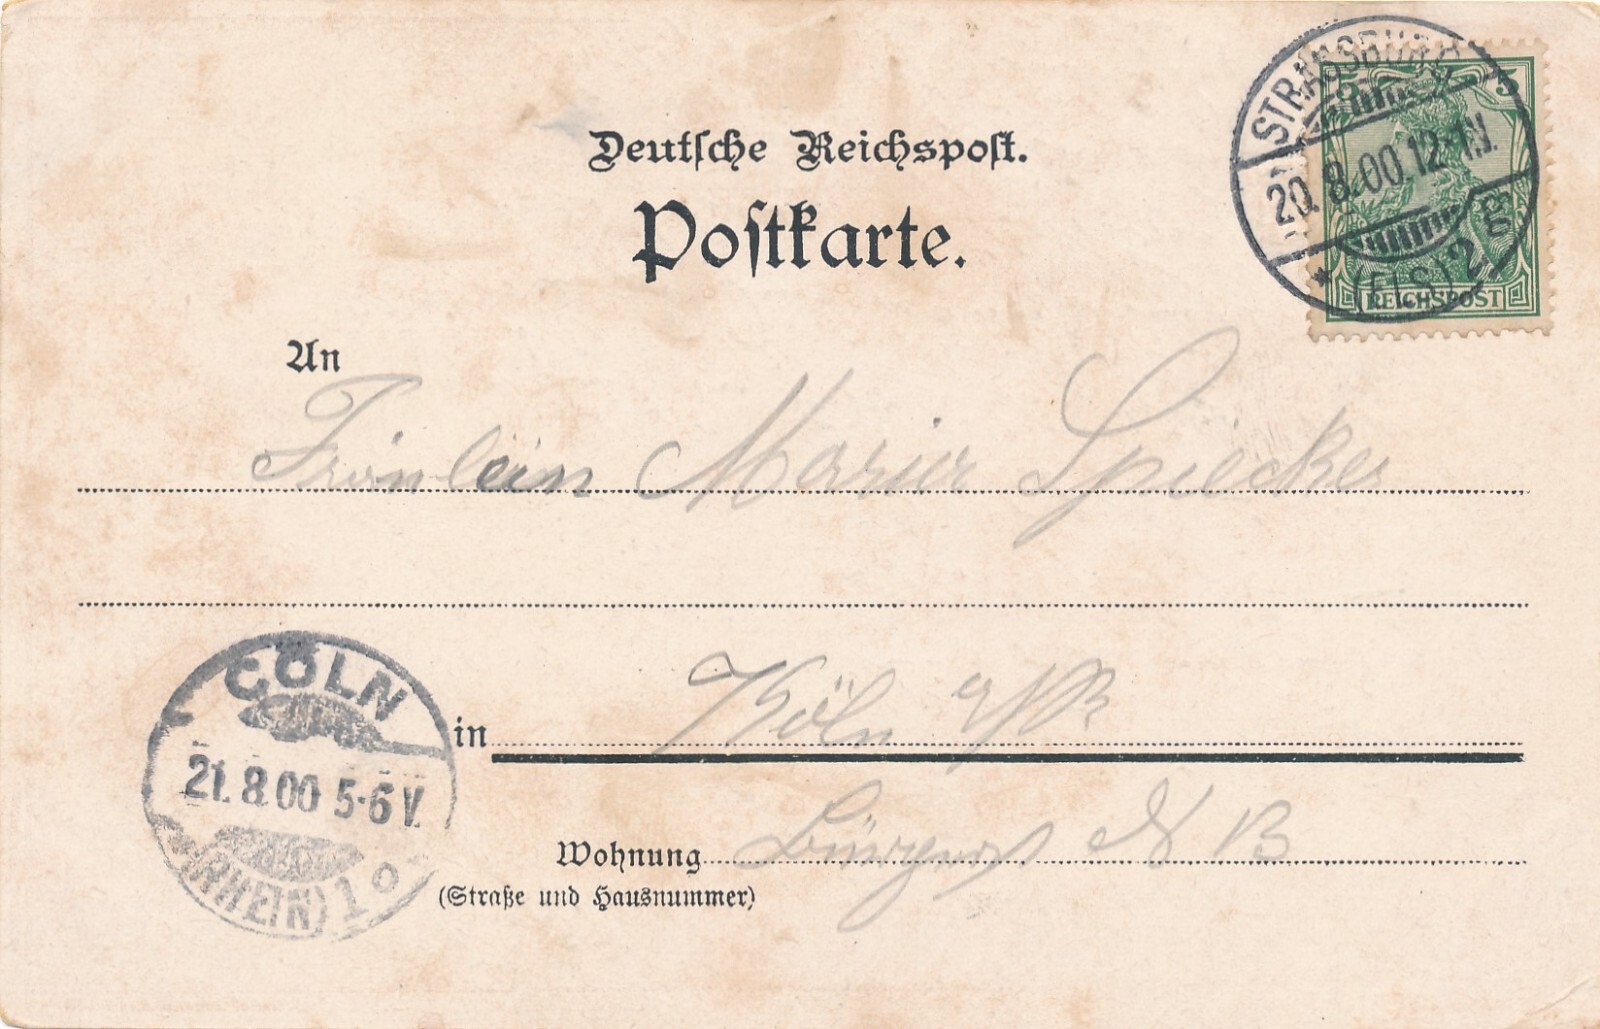 Deutsche Reichspost.
Postkarte.
5 5
REICHSPOST
STRASSBURG
20.8.00.12-1N.
* (ELS) 2 g
An
Fräulein Marie Spiecker
CÖLN
21.8.00 5-6 V.
(RHEIN) 1 o
in Köln a/R
Wohnung
(Straße und Hausnummer)